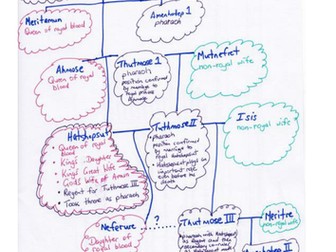 Meritamun
Queen of royal
blood
Amenhotep 1
pharaoh
Ahmose
Queen of royal
blood
Thutmose 1
pharaoh
position confirmed
by marriage to
royal princess
Mutnefret
non-royal wife
Hatshepsut
Queen of royal
blood
King's Daughter
King's Great Wife
God's Wife of Amun
Regent for Tuthmose III
Took throne as pharaoh
Thutmose II
pharaoh
position confirmed
by marriage to
royal Hatshepsut
Hatshepsut plays an
important role
even before
Isis
non-royal wife
Neferure
Daughter of
royal blood
?
Thutmose III
Meritre
non-royal wife
Amenhotep II